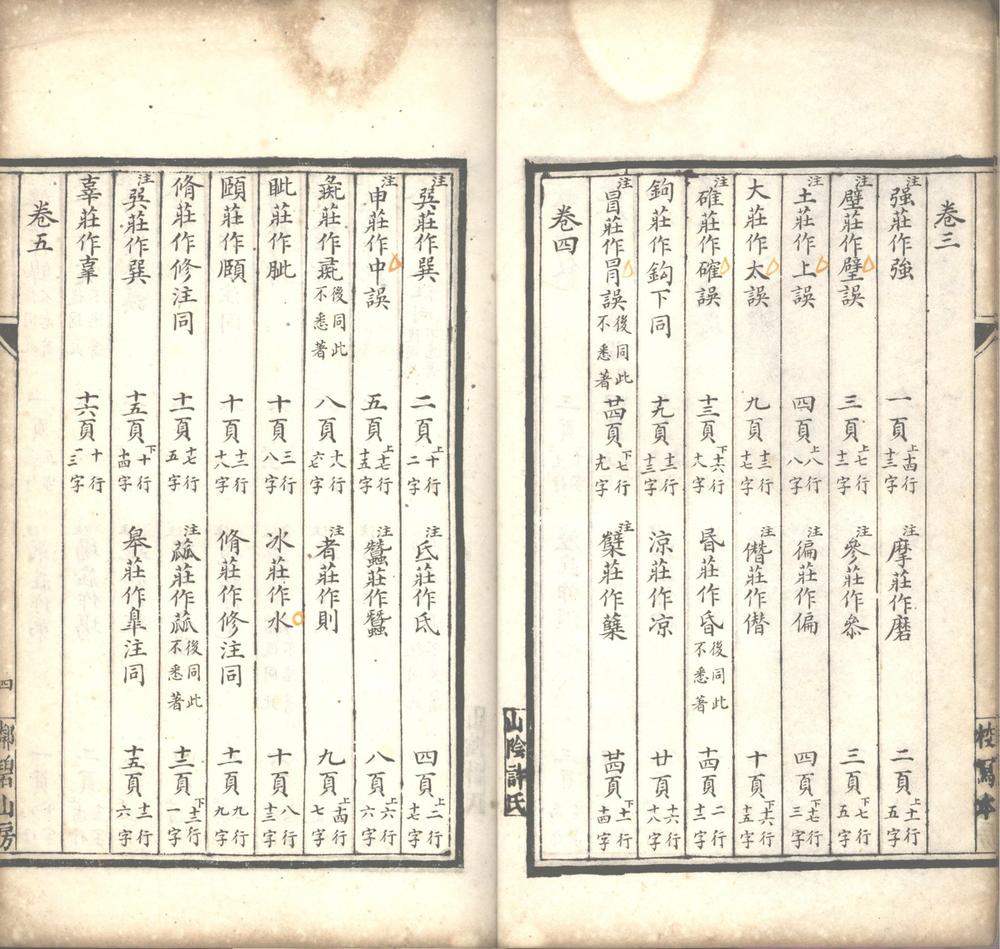 卷三
注强莊作強 一頁上十四行十三字 注摩莊作磨 二頁上十一行五字
注壁莊作璧誤 三頁上七行十二字 注參莊作叅 三頁下七行五字
注土莊作上誤 四頁上八行八字 注徧莊作偏 四頁上七行三字
大莊作太誤 九頁十三行十七字 注僭莊作僣 十頁下十六行十五字
注碓莊作確誤 十三頁下十六行九字 昬莊作昏後同此不悉著 十四頁二行十二字
鉤莊作鈎下同 十九頁十二行十三字 涼莊作凉 廿頁十六行十八字
注冒莊作冐誤後同此不悉著 廿四頁下七行九字 注糵莊作蘖 廿四頁下十一行十四字
卷四
山陰許氏
校寫本
注㢲莊作巽 二頁上十行二字 注氐莊作氏 四頁上二行十七字
注申莊作中誤 五頁上七行十五字 注蠶莊作蚕 八頁上六行六字
莊作後同此不悉著 八頁十八行六七字 注者莊作則 九頁上十四行七字
眦莊作眥 十頁三行八字 冰莊作水 十頁八行十三字
頤莊作頥 十頁十二行十八字 脩莊作修注同 十一頁九行九字
脩莊作修注同 十一頁十七行五字 注莊作後同此不悉著 十三頁下十二行一字
注㢲莊作巽 十五頁下十行十四字 皋莊作臯注同 十五頁十二行六字
莊作 十六頁十行十三字
卷五
四
鄰碧山房